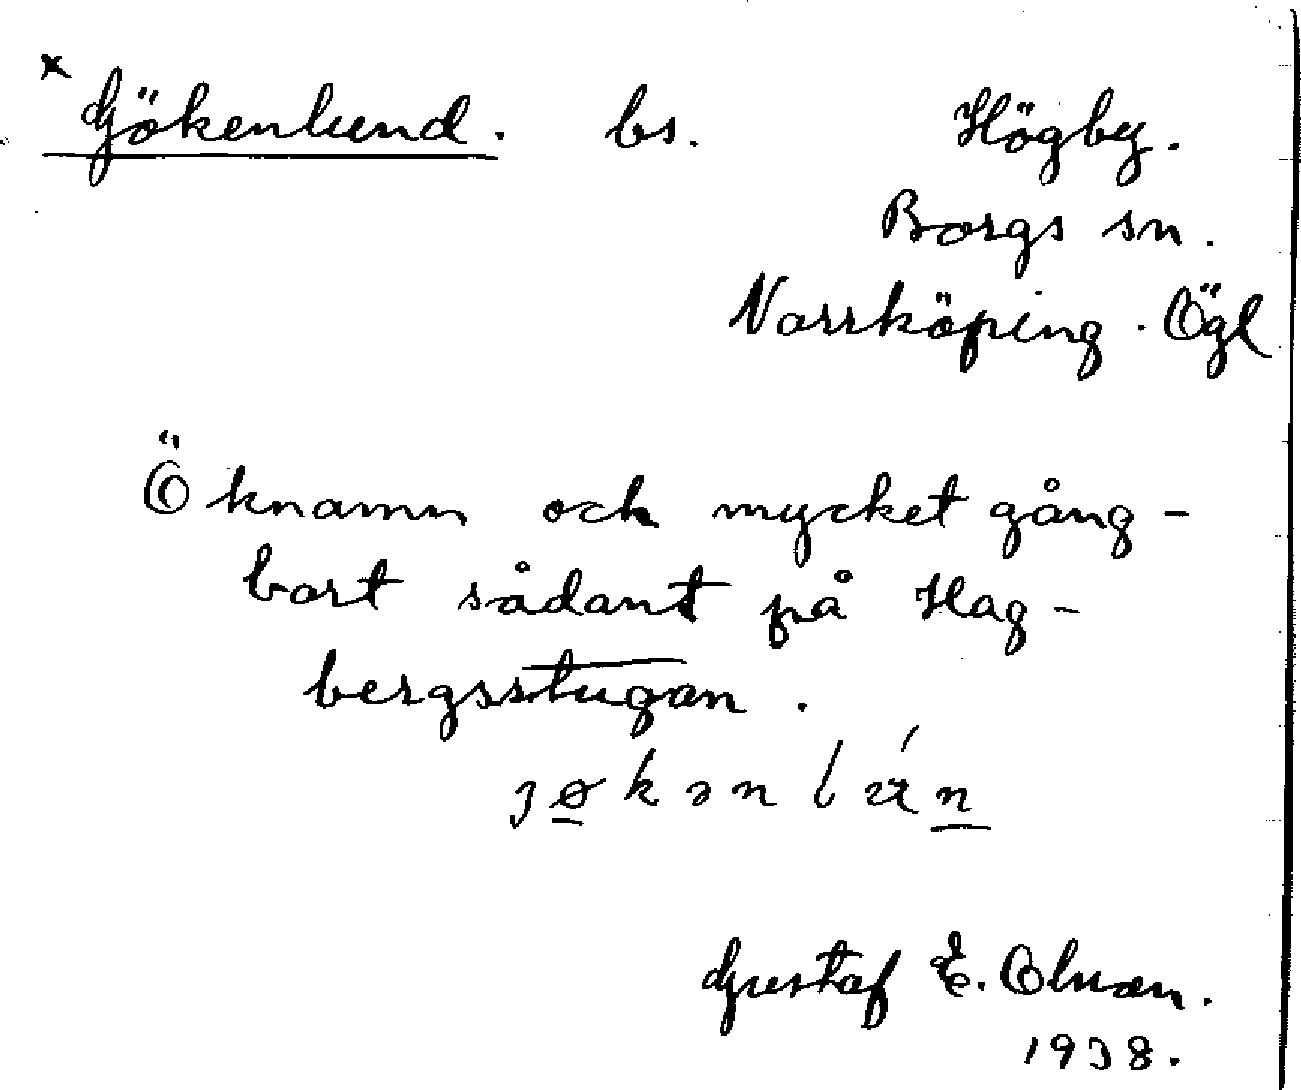 x Gökenlund. bs. Högby.
Borgs sn.
Norrköping. Ögl
Öknamn och mycket gång-
bart sådant på Hag-
bergsstugan.
Gustaf E. Olsson.
1938.